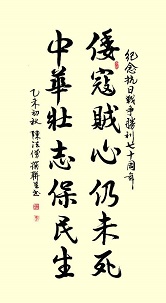 纪念抗日战争勝利七十周年
倭寇贼心仍未死
中華壮志保民生
乙未初秋 陳法僧撰聯並書